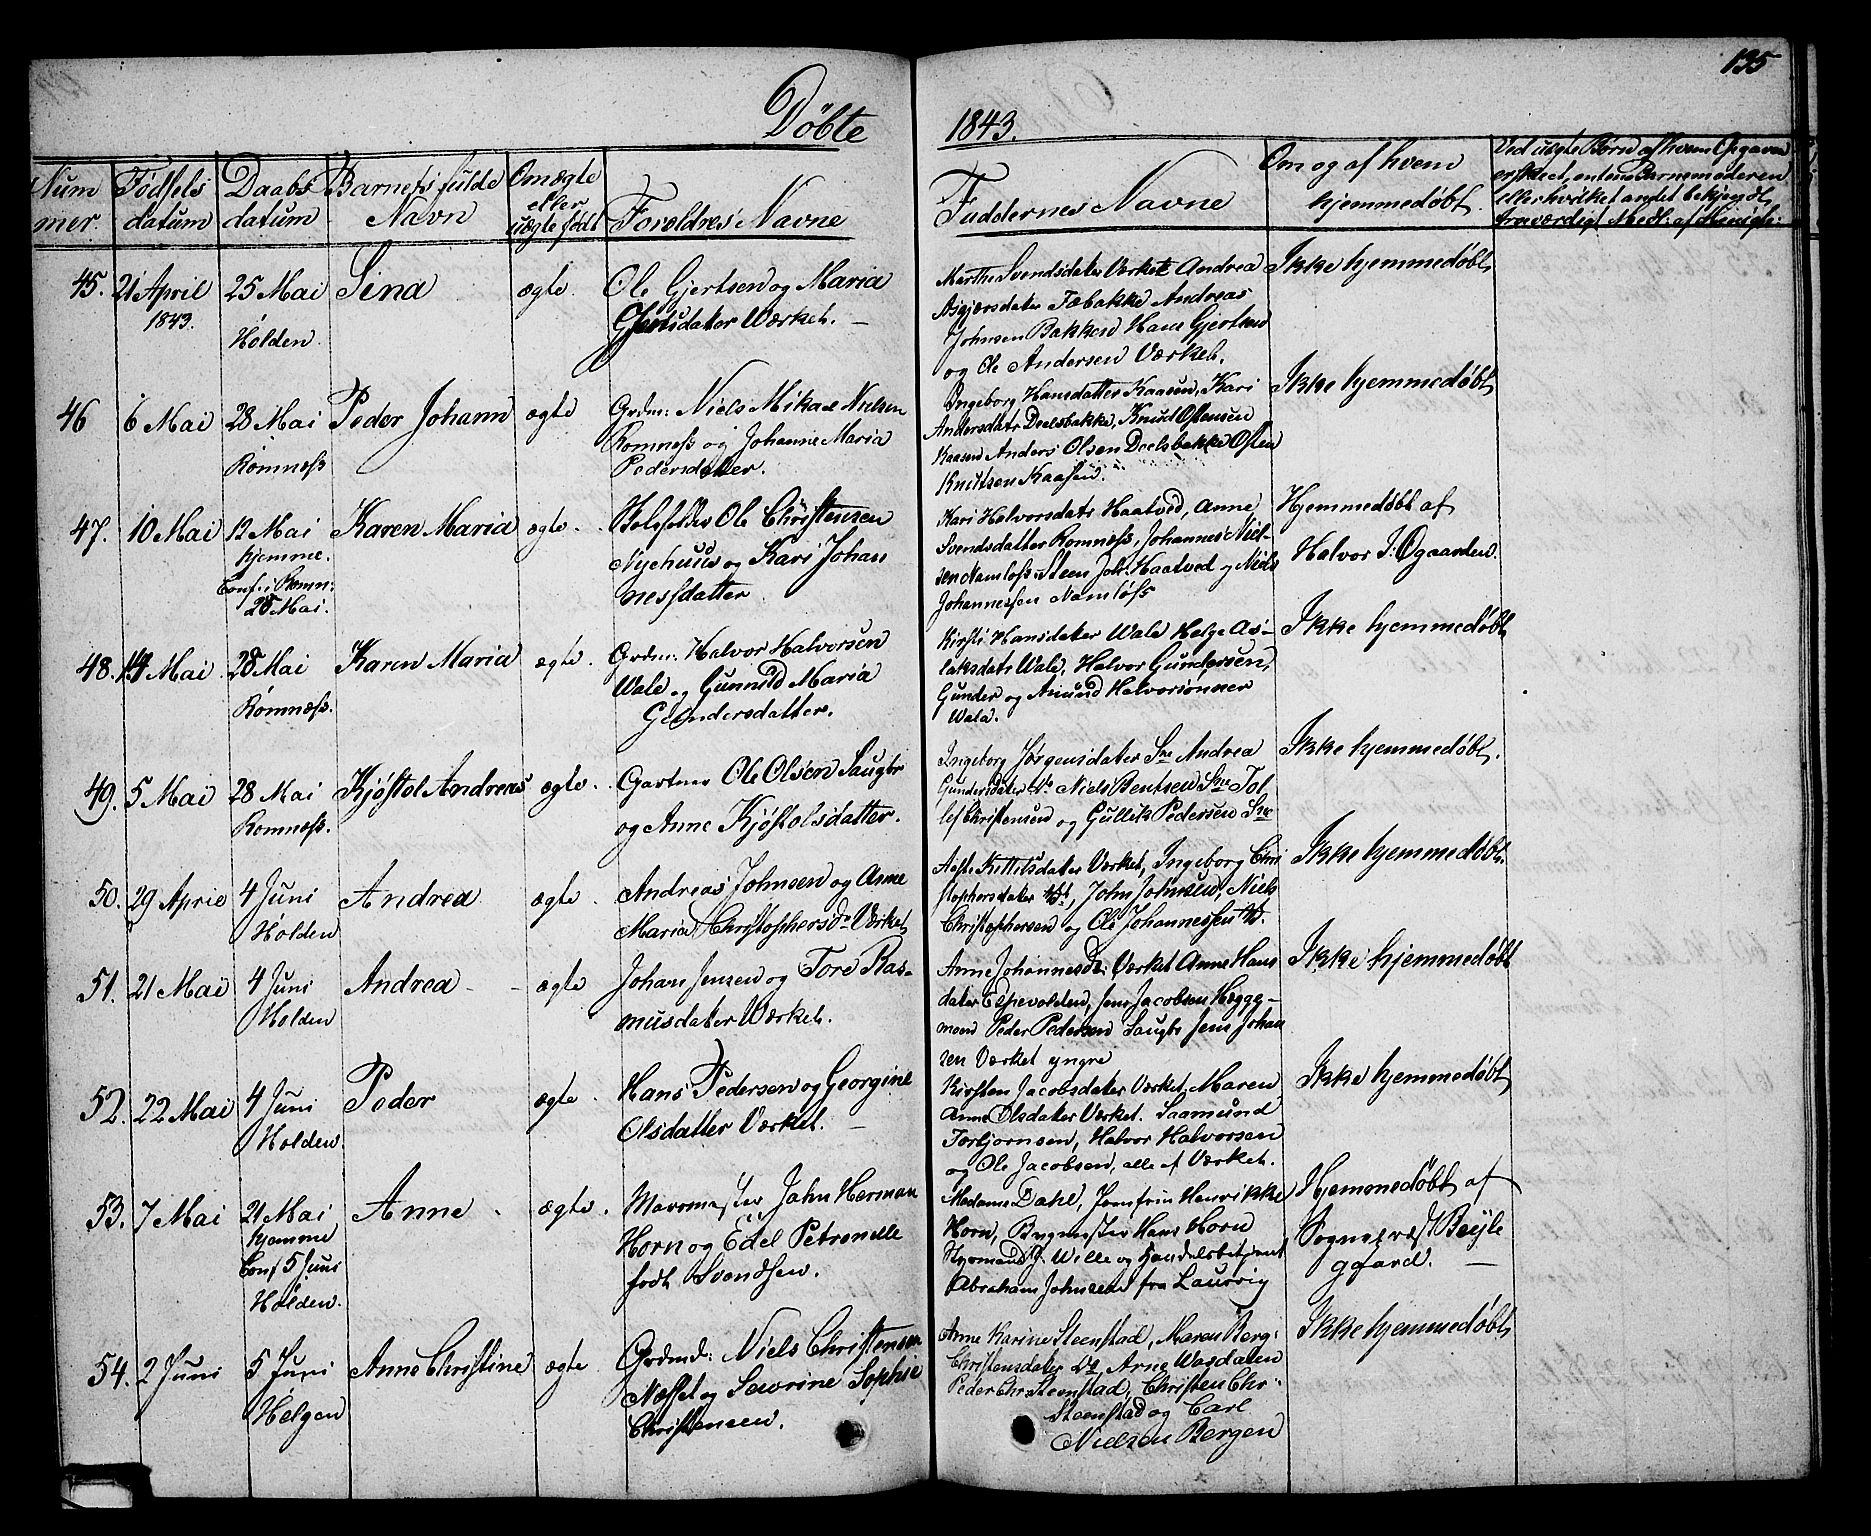 135
Døbte 1843.
Num mer.
Fødsels datum
Daabs datum
Barnets fulde Navn
Om ægte eller uægte født
Forældres Navne
Faddernes Navne
Om og af hvem hjemmedøbt
Ved uægte Børn af hvem Opgaven er skeet, enten Barnemoderen eller hvilket andet bekjendt, troværdigt Medl: af Menigh:
45. 21 April 1843.
25 Mai Holden
Sina
ægte
Ole Gjertsen og Maria
Gjertsdater Værket. —
Marthe Svendsdater Værket Andrea
Asgjersdater Fæbakke Andreas
Johnsen Bakken Hans Gjertsen
og Ole Andersen Værket.
Ikke hjemmedøbt
46 6 Mai
28 Mai Romness
Peder Johann
ægte
Grdm: Niels Mikael Nielsen
Romness og Johanne Maria
Pedersdatter.
Ingeborg Hansdatter Kaasen, Kari
Andersdatr Doelsbakke, Knud Ostensen
Kaasen Anders Olsen Doelsbakke Osten
Knutsen Kaasen.
Ikke hjemmedøbt
47. 10 Mai
12 Mai hjemme. Conf. i Romn: 28 Mai.
Karen Maria
ægte.
Ole Christensen
Nyehuus og Kari Johan
nessdatter
Kari Halvorsdatr Haatved, Anne
Svendsdatter Romness, Johannes Niel-
sen Namløss Steen Joh: Haatved og Niels
Johannessen Namløss
Hjemmedøbt af
Halvor J: Øgaarden.
48. 14 Mai
28 Mai Romness.
Karen Maria
ægte.
Grdm. Halvor Halvorsen
Wale og Gunnild Maria
Gundersdatter.
Kirsti Hansdater Wale Helge As-
laksdatr Wale, Halvor Gundersen,
Gunder og Amund Halvorsønner
Wala.
Ikke hjemmedøbt
49. 5 Mai
28 Mai Romness.
Kjøstol Andreas
ægte.
Gartner Ole Olsen Saugbr
og Anne Kjøstolsdatter.
Ingeborg Jørgensdater Andrea
Gundersdater Niels Bentsen Tol
lef Christensen og Gullik Pedersen
Ikke hjemmedøbt.
50. 29 April
4 Juni Holden
Andrea
ægte.
Andreas Johnsen og Anne
Maria Christophersdr Værket
Aaste Kittilsdater Værket, Ingeborg Chri
stophersdater John Johnsen, Niels
Christophersen og Ole Johannessen
Ikke hjemmedøbt.
51. 21 Mai
4 Juni Holden
Andrea
ægte
Johan Jensen og Tore Ras-
musdater Værket.
Anne Johannesdr: Værket Anne Hans
dater Espevolden, Jens Jacobsen Hegg-
moen Peder Pedersen Saugbr Jens Johan
sen Værket yngre
Ikke hjemmedøbt
52. 22 Mai
4 Juni Holden.
Peder
ægte.
Hans Pedersen og Georgine
Olsdatter Værket. —
Kirsten Jacobsdater Værket, Maren
Anne Olsdater Værket. Saamund
Torbjornsen, Halvor Halvorsen
og Ole Jacobsen, alle af Værket.
Ikke hjemmedøbt
53. 7 Mai
21 Mai hjemme Conf 5 Juni Holden.
Anne
ægte.
Marcmester John Herman
Horn og Edel Petronelle
født Svendsen.
Madame Dahl, Jomfrue Henrikke
Horn, Bygmester Hans Horn
J. Wille og Handelsbetjent
Abraham Johnsen fra Laurvig
Hjemmedøbt af
Sognepræst Beyle
gaard. —
54. 2 Juni
5 Juni Helgen
Anne Christine
ægte.
Grdmd: Niels Christensen
Næsset og Severine Sophie
Christensen.
Anne Karine Steenstad, Maren Berg:
Christensdater Do Arne Wasdalen
Peder Chr Steenstad, Christen Chr:
Steenstad og Carl
Nielsen Bergen
Ikke hjemmedøbt